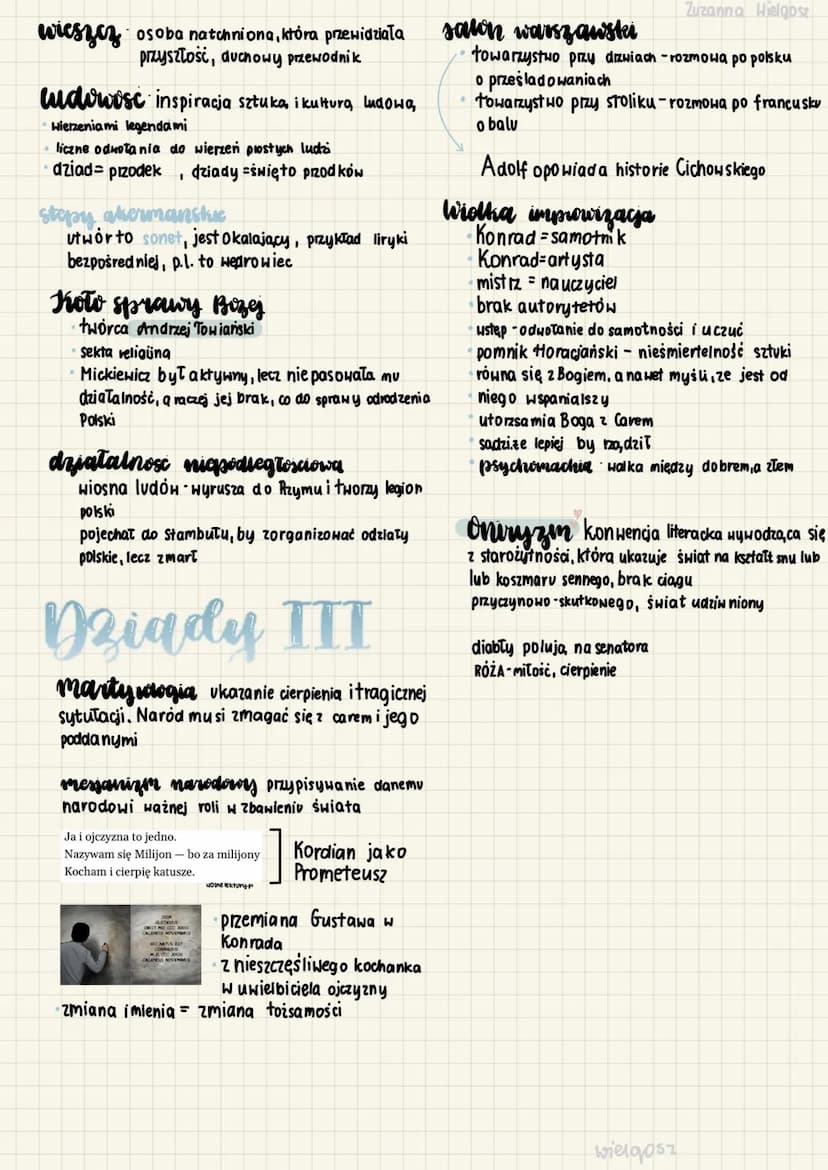 Zuzanna Wielgosz
wieszcz · osoba natchniona, która przewidziała
przyszłość, duchowy przewodnik
ludowość · inspiracja sztuką i kulturą ludową,
· wierzeniami legendami
· liczne odwołania do wierzeń prostych ludzi
· dziad= przodek , dziady =święto przodków
stepy akermańskie
utwór to sonet, jest okalający, przykład liryki
bezpośredniej, p.l. to wędrowiec
Koło sprawy Bożej
· twórca Andrzej Towiański
· sekta religijna
· Mickiewicz był aktywny, lecz nie pasowała mu
działalność, a raczej jej brak, co do sprawy odrodzenia
Polski
działalność niepodległościowa
wiosna ludów - wyrusza do Rzymu i tworzy legion
polski
pojechał do Stambułu, by zorganizować odziały
polskie, lecz zmarł
Dziady III
Martyrologia ukazanie cierpienia i tragicznej
sytułacji. Naród musi zmagać się z carem i jego
poddanymi
mesjanizm narodowy przypisywanie danemu
narodowi ważnej roli w zbawieniu świata
Ja i ojczyzna to jedno.
Nazywam się Milijon — bo za milijony
Kocham i cierpię katusze.
wolne lektury.pl
Kordian jako
Prometeusz
· przemiana Gustawa w
Konrada
· z nieszczęśliwego kochanka
w uwielbiciela ojczyzny
· zmiana imienia = zmiana tożsamości
salon warszawski
· towarzystwo przy drzwiach - rozmowa po polsku
o prześladowaniach
· towarzystwo przy stoliku - rozmowa po francusku
o balu
Adolf opowiada historie Cichowskiego
Wielka improwizacja
· Konrad = samotnik
· Konrad=artysta
· mistrz = nauczyciel
· brak autorytetów
· wstęp - odwołanie do samotności i uczuć
· pomnik Horacjański - nieśmiertelność sztuki
· równa się z Bogiem, a nawet myśli, ze jest od
· niego wspanialszy
· utożsamia Boga z Carem
· sądzi, że lepiej by rządził
· psychomachia · walka między dobrem, a złem
Oniryzm konwencja literacka wywodząca się
z starożytności, która ukazuje świat na kształt snu lub
lub koszmaru sennego, brak ciągu
przyczynowo-skutkowego, świat udziwniony
diabły polują na senatora
RÓŻA - miłość, cierpienie
wielgosz